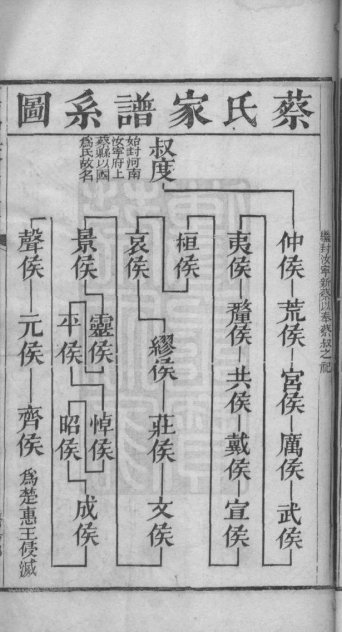 蔡氏家譜系圖
叔度
始封河南
汝寧府上
蔡縣以國
爲氏故名
繼封汝寧新蔡以奉蔡叔之祀
仲侯
荒侯
宮侯
厲侯
武侯
夷侯
釐侯
共侯
戴侯
宣侯
桓侯
哀侯
繆侯
莊侯
文侯
景侯
靈侯
悼侯
平侯
昭侯
成侯
聲侯
元侯
齊侯
爲楚惠王侵滅